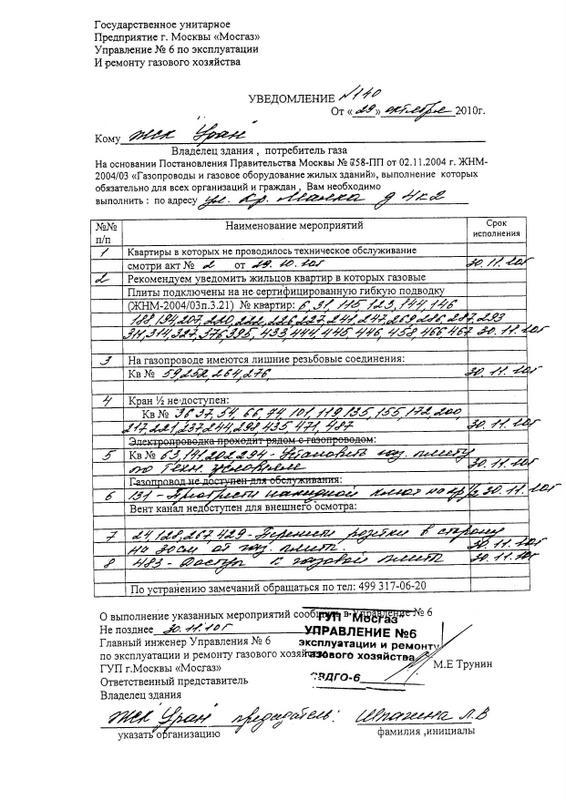 Государственное унитарное
Предприятие г. Москвы «Мосгаз»
Управление № 6 по эксплуатации
И ремонту газового хозяйства
УВЕДОМЛЕНИЕ №140
От «29» октября 2010г.
Кому ЖСК "Уран"
Владелец здания , потребитель газа
На основании Постановления Правительства Москвы № 758-ПП от 02.11.2004 г. ЖНМ-
2004/03 «Газопроводы и газовое оборудование жилых зданий», выполнение которых
обязательно для всех организаций и граждан , Вам необходимо
выполнить : по адресу ул. Кр. Маяка д 4к2
№№ п/п Наименование мероприятий Срок исполнения
1 Квартиры в которых не проводилось техническое обслуживание
смотри акт № 2 от 29.10.10г 30.11.10г
2 Рекомендуем уведомить жильцов квартир в которых газовые
Плиты подключены на не сертифицированную гибкую подводку
(ЖНМ-2004/03п.3.21) № квартир: 6, 31, 115, 123, 144, 146
188, 194, 207, 220, 222, 226, 227, 241, 247, 269, 286, 287, 293
311, 314, 327, 376, 395, 433, 444, 445, 446, 458, 466, 467 30.11.10г
3 На газопроводе имеются лишние резьбовые соединения:
Кв № 59, 252, 264, 276, 30.11.10г
4 Кран ½ не доступен:
Кв № 36 37, 54, 66, 74, 101, 119, 135, 155, 172, 200
217, 221, 237, 244, 298, 435, 471, 487 30.11.10г
Электропроводка проходит рядом с газопроводом:
5 Кв № 63, 141, 202, 294 - Установить газ. плиту
по техн. условиям 30.11.10г
Газопровод не доступен для обслуживания:
6 131 - накидной ключ на 30.11.10г
Вент канал недоступен для внешнего осмотра:
7 24, 128, 267, 429 - Перенести розетки в сторону
на 30см от газ. плит. 30.11.10г
8 483 - Доступ к газовой плите 30.11.10г
По устранению замечаний обращаться по тел: 499 317-06-20
О выполнение указанных мероприятий сообщить в Управление № 6
Не позднее 30.11.10г
Главный инженер Управления № 6
по эксплуатации и ремонту газового хозяйства
ГУП г.Москвы «Мосгаз»
М.Е Трунин
ГУП "Мосгаз"
УПРАВЛЕНИЕ №6
эксплуатации и ремонту
газового хозяйства
СВДГО-6
Ответственный представитель
Владелец здания
ЖСК "Уран" председатель: Шпагина Л.В
указать организацию фамилия ,инициалы